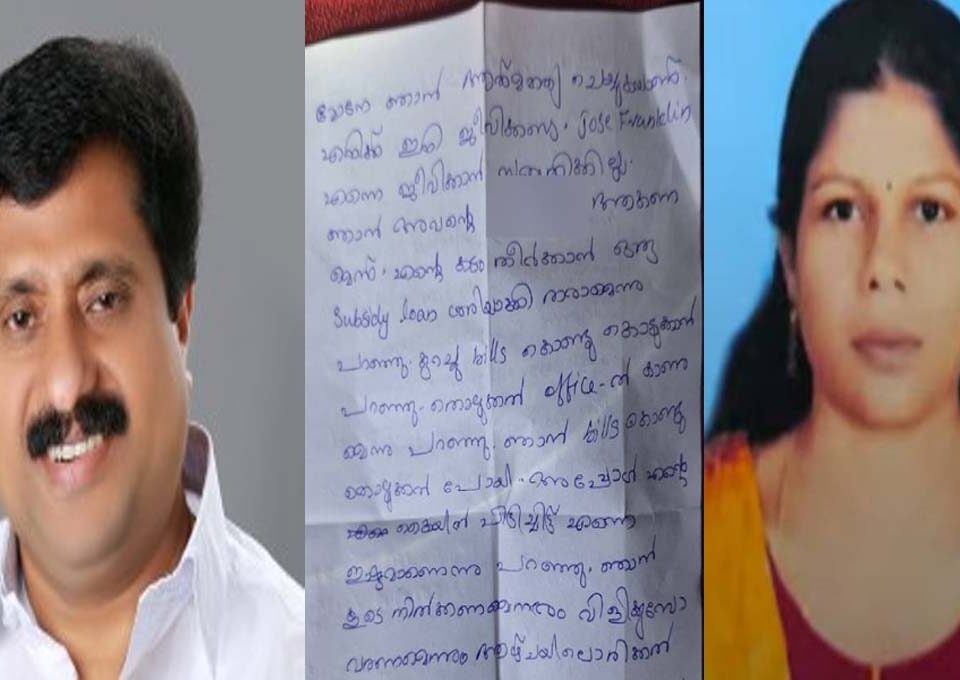 മോനേ ഞാൻ ആത്മഹത്യ ചെയ്യുകയാണ്.
എനിക്ക് ഇനി ജീവിക്കണ്ട. Jose Franklin
എന്നെ ജീവിക്കാൻ സമ്മതിക്കില്ല.
ഞാൻ അവന്റെ
എന്റെ കടം തീർക്കാൻ ഒരു
Subsidy loan ശരിയാക്കി തരാമെന്നു
പറഞ്ഞു. കുറച്ച് bills കൊണ്ടു കൊടുക്കാൻ
പറഞ്ഞു. office-ൽ
പറഞ്ഞു. ഞാൻ bills കൊണ്ടു
കൊടുക്കാൻ പോയി. അപ്പോൾ എന്റെ
കൈയിൽ പിടിച്ചിട്ട് എന്നെ
ഇഷ്ടമാണെന്നു പറഞ്ഞു. ഞാൻ
കൂടെ നിൽക്കണമെന്നും വിളിക്കുമ്പോ
വരണമെന്നും ആഴ്ചയിലൊരിക്കൽ